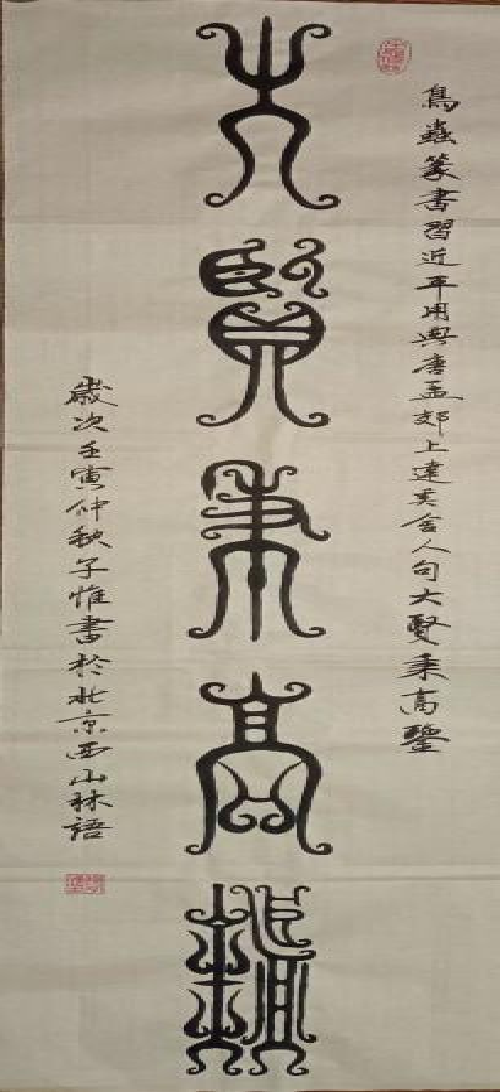 鳥蟲篆書習近平用典唐孟郊上達奚舍人句大賢秉高鑒
大賢秉高鑑
歲次壬寅仲秋子惟書於北京西山林語